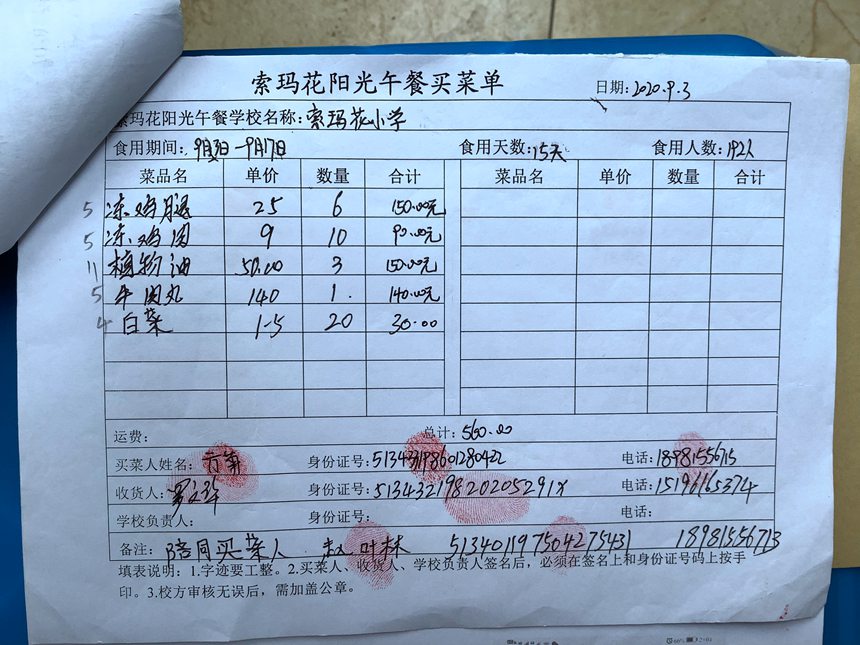 索玛花阳光午餐买菜单
日期: 2020.9.3
索玛花阳光午餐学校名称: 索玛花小学
食用期间: 9月3日-9月17日 食用天数: 15天 食用人数: 192人
菜品名 单价 数量 合计 菜品名 单价 数量 合计
5 冻鸡腿 25 6 150.00元
5 冻鸡肉 9 10 90.00元
11 植物油 50.00 3 150.00元
5 牛肉丸 140 1. 140.00元
4 白菜 1-5 20 30.00
运费: 总计: 560.00
买菜人姓名: 身份证号: 电话: 18981556715
收货人: 身份证号: 51343219820205291X 电话: 15196165374
学校负责人: 身份证号: 电话:
备注: 陪同买菜人 赵叶林 513401197504275431 18981556713
填表说明: 1.字迹要工整。2.买菜人、收货人、学校负责人签名后，必须在签名上和身份证号码上按手
印。3.校方审核无误后，需加盖公章。